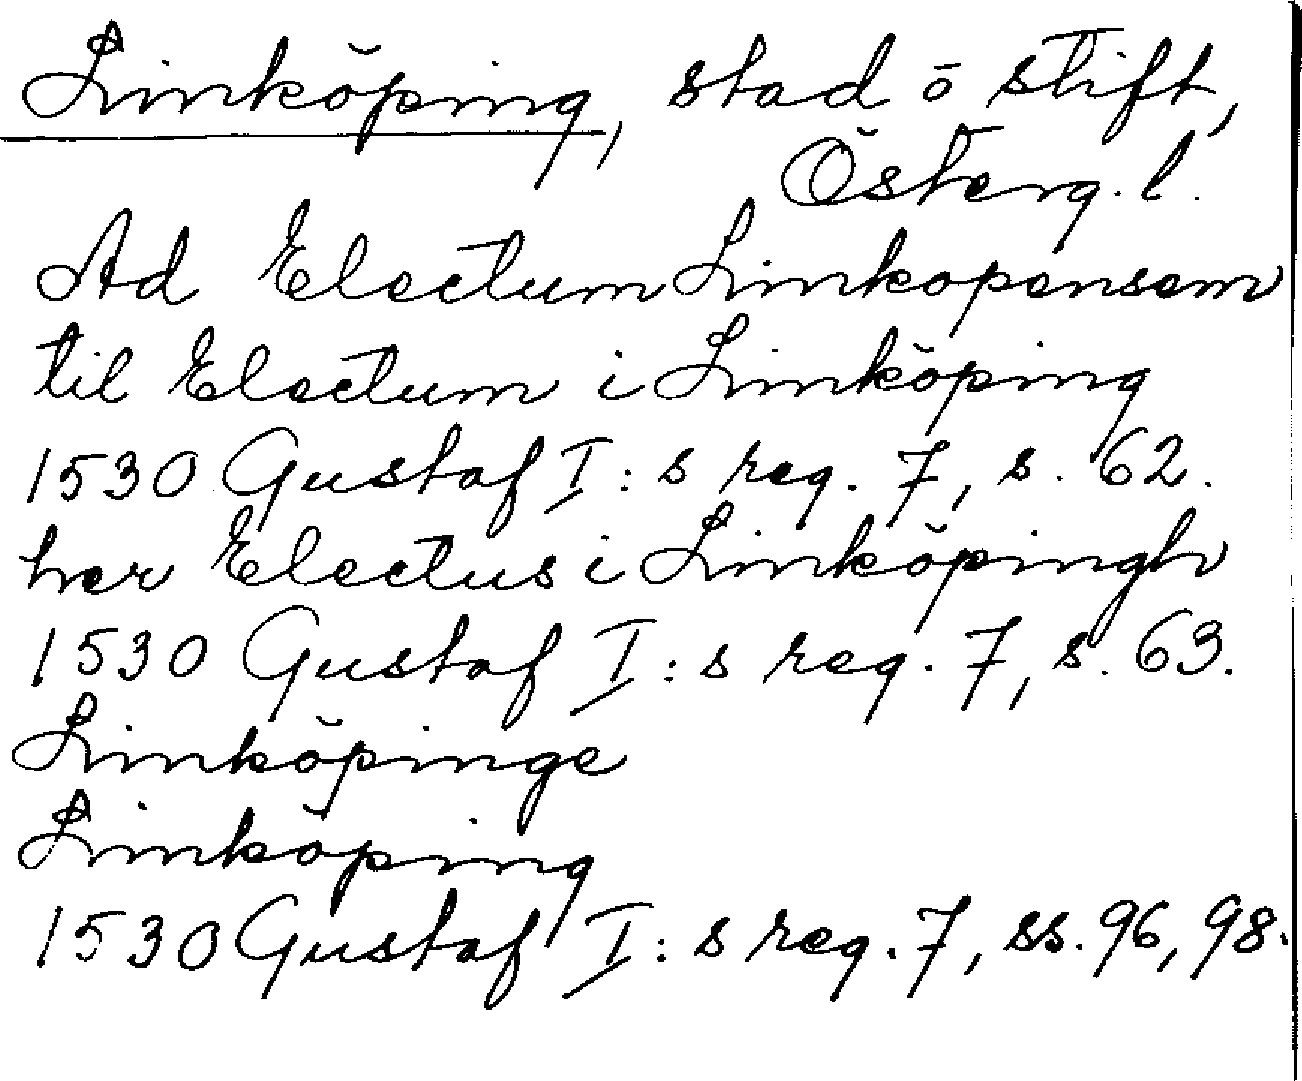 Linköping, stad o stift,
Österg. l.
Ad Electum Linkopensem
til Electum i Linköping
1530 Gustaf I:s reg. 7, s. 62.
her Electus i Linköpingh
1530 Gustaf I:s reg. 7, s. 63.
Linköpinge
Linköping
1530 Gustaf I:s reg. 7, ss. 96, 98.